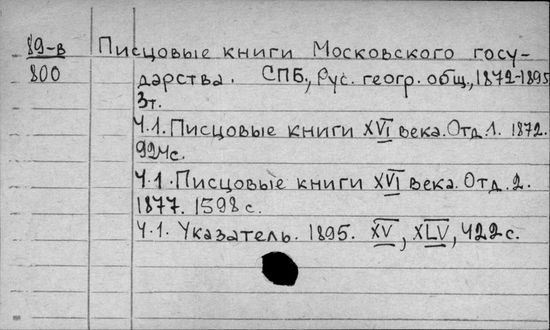 89-в Писцовые книги Московского госу-
800 дарства. СПБ, Рус. геогр. общ., 1872-1895
3т.
Ч.1. Писцовые книги XVI века. Отд. 1. 1872.
924с.
Ч.1. Писцовые книги XVI века. Отд. 2.
1877. 1598 с.
Ч.1. Указатель. 1895. XV, XLV, 422 с.